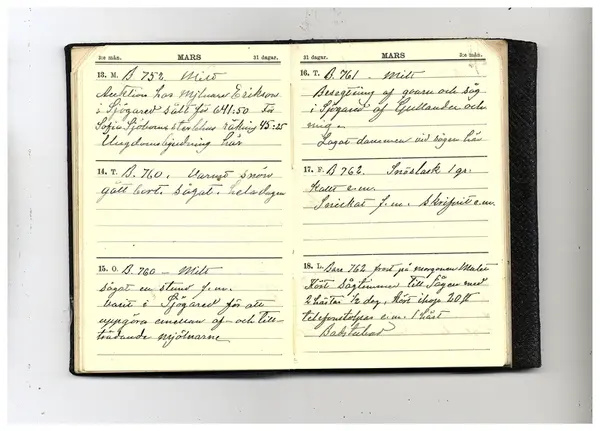 3:e mån. MARS 31 dagar.
13. M. B 752 Mild
Auktion hos Mjölnare Erikson
i Sjögared sålt för 641:50 För
Sofia Sjöboms sterbhus räkning 45:25
Ungdomsbjudning här
14. T. B. 760. Varmt snön
gått bort. Sågat hela dagen
15. O. B. 760 – Milt
Sågat en stund f.m.
varit i Sjögared för att
uppgöra emellan af- och till-
trädande mjölnarne
31 dagar. MARS 3:e mån.
16. T. B. 761 – Milt
Besegtning af qvarn och såg
i Sjögared af Gullander och
mig.
Lagat dammen vid sågen här
17. F. B 762. Snöslask 1 gr.
kallt e.m.
Snickat f.m. skrifvit e.m.
18. L. Baro 762 frost på morgonen Mulet
Kört sågtimmer till Sågen med
2 hästar ½ dag, Kört ihop 20 st
telefonstolpar e.m. 1 häst